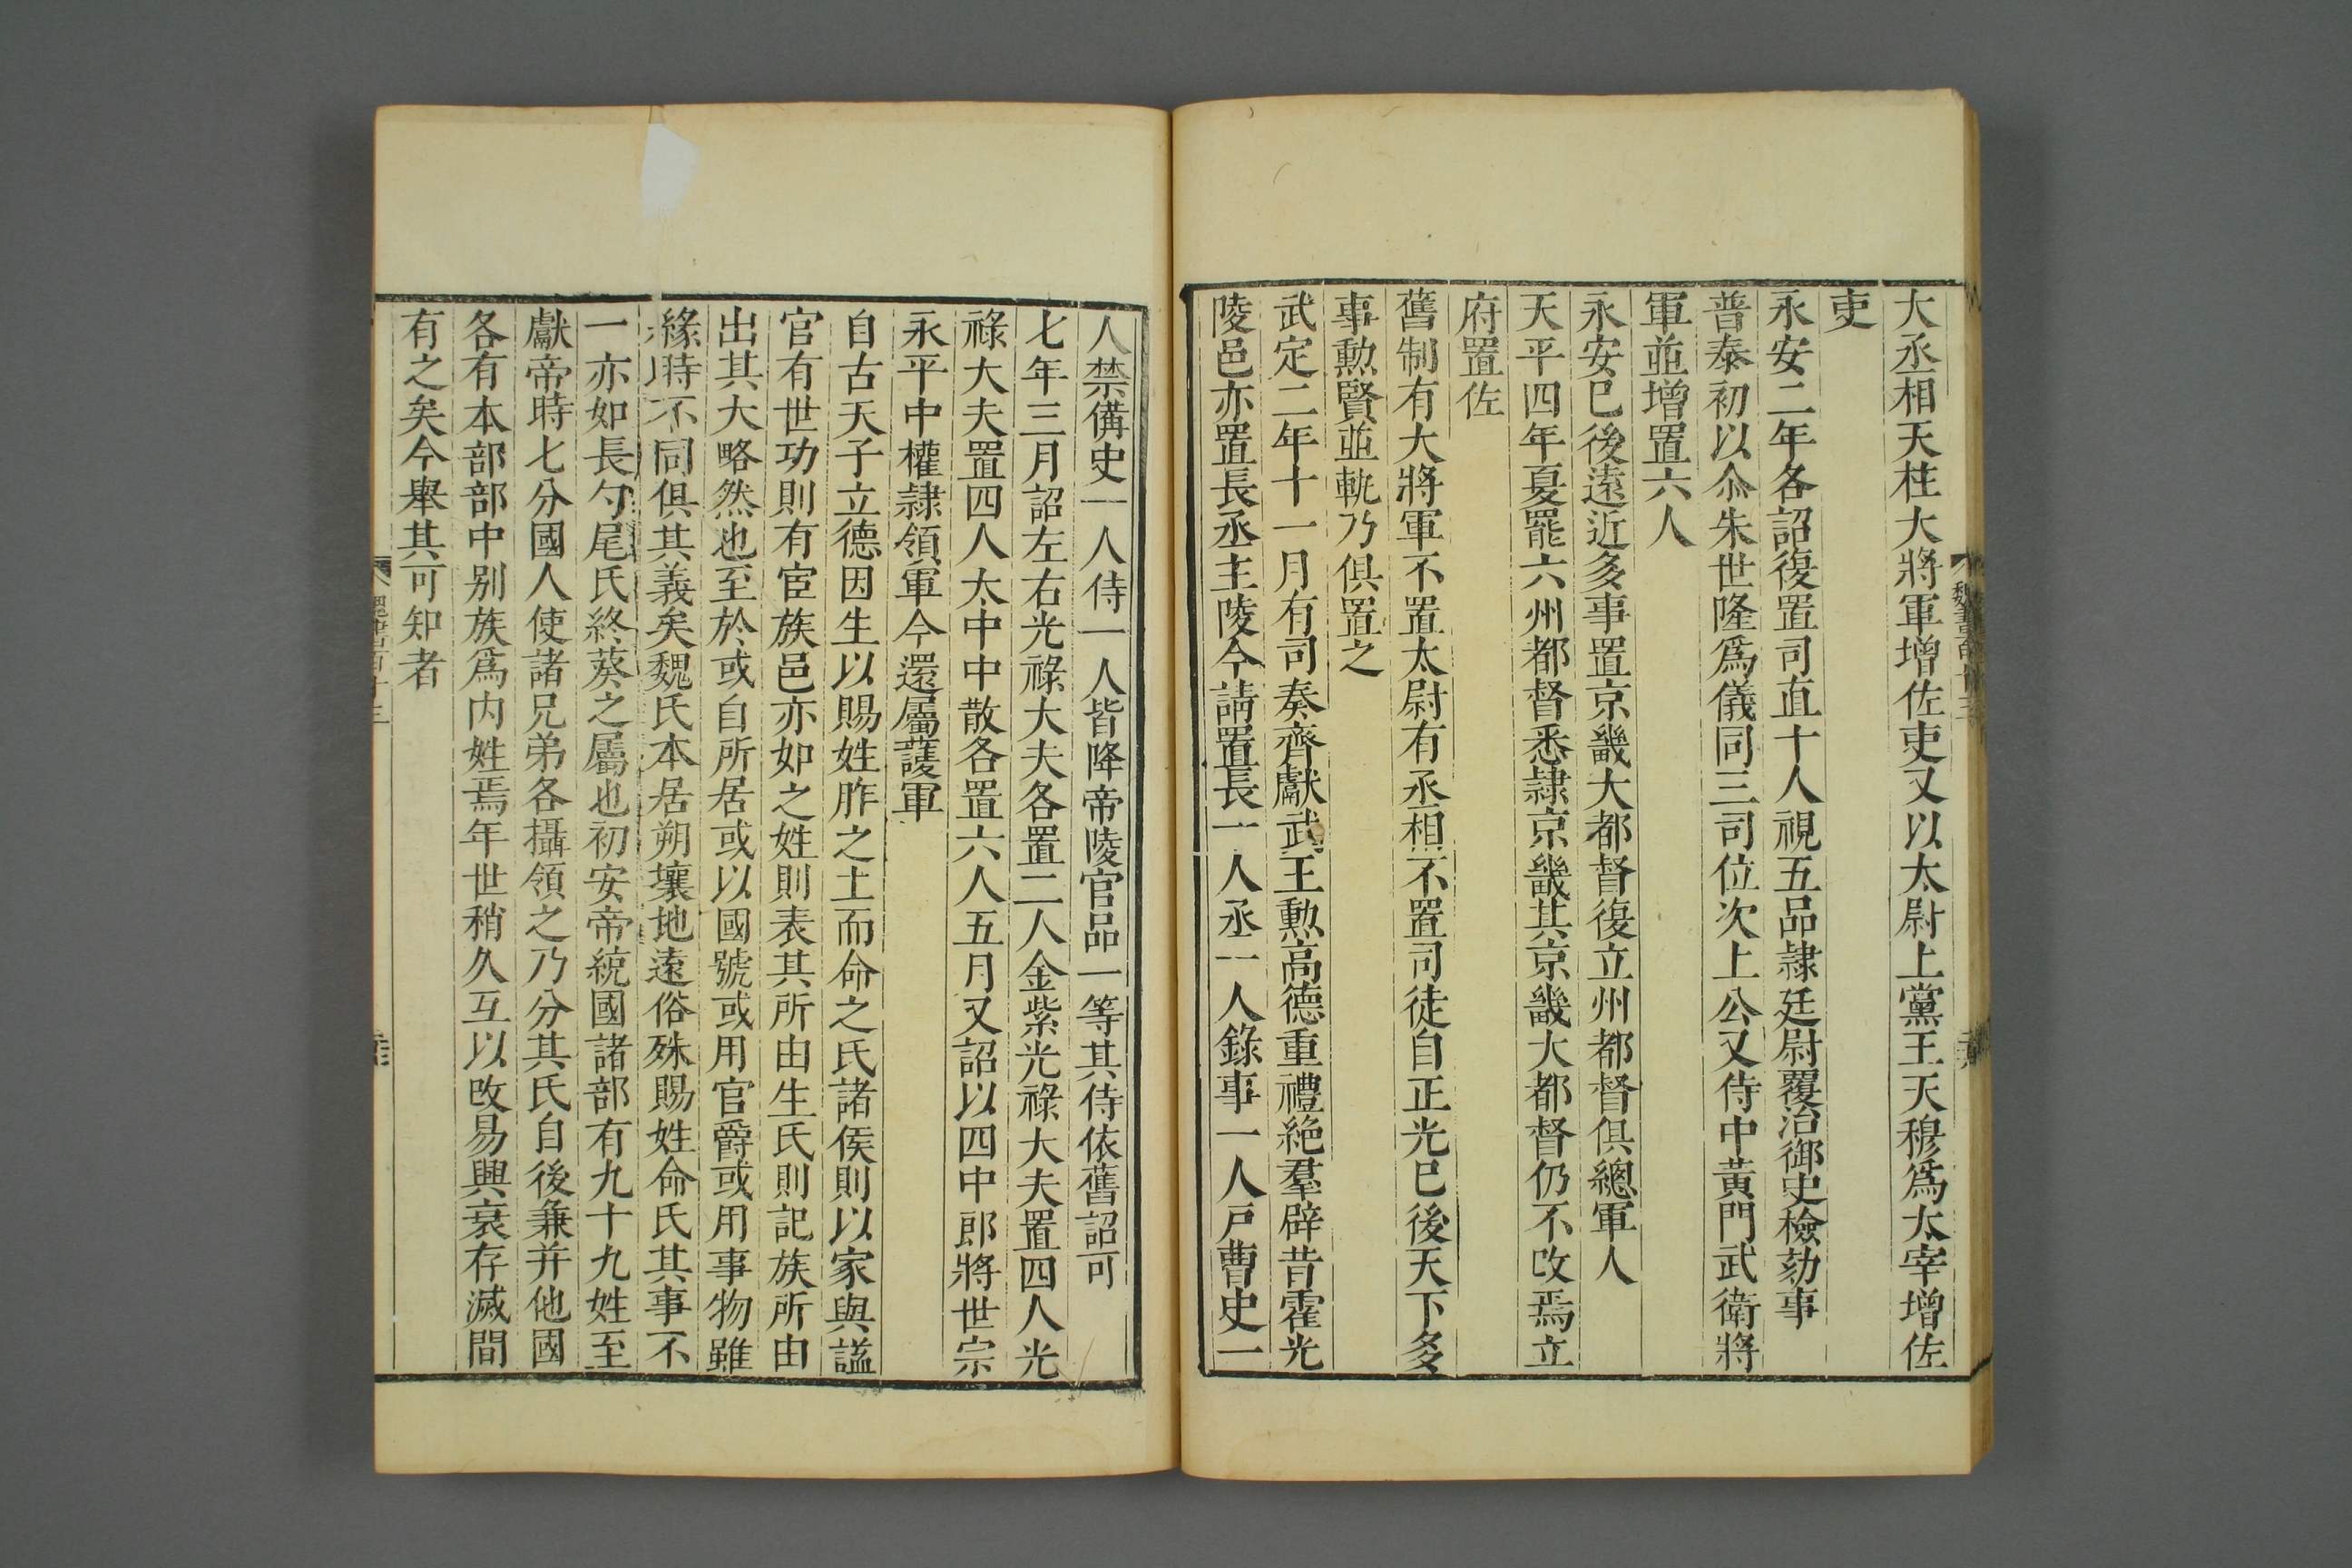 大丞相天柱大將軍增佐吏又以太尉上黨王天穆爲太宰增佐
吏
永安二年各詔復置司直十人視五品隷廷尉覆治御史檢劾事
普泰初以尒朱世隆爲儀同三司位次上公又侍中黃門武衛將
軍並增置六人
永安巳後遠近多事置京畿大都督復立州都督俱總軍人
天平四年夏罷六州都督悉隷京畿其京畿大都督仍不改焉立
府置佐
舊制有大將軍不置太尉有丞相不置司徒自正光巳後天下多
事勲賢並軌乃俱置之
武定二年十一月有司奏齊獻武王勲高德重禮絶羣辟昔霍光
陵邑亦置長丞主陵今請置長一人丞一人錄事一人戸曹史一
人禁備史一人侍一人皆降帝陵官品一等其侍依舊詔可
七年三月詔左右光祿大夫各置二人金紫光祿大夫置四人光
祿大夫置四人太中中散各置六人五月又詔以四中郎將世宗
永平中權隷領軍今還屬護軍
自古天子立德因生以賜姓胙之土而命之氏諸侯則以家與謚
官有世功則有宦族邑亦如之姓則表其所由生氏則記族所由
出其大略然也至於或自所居或以國號或用官爵或用事物雖
緣時不同俱其義矣魏氏本居朔壤地遠俗殊賜姓命氏其事不
一亦如長勺尾氏終葵之屬也初安帝統國諸部有九十九姓至
獻帝時七分國人使諸兄弟各攝領之乃分其氏自後兼并他國
各有本部部中别族爲内姓焉年世稍久互以改易興衰存滅間
有之矣今舉其可知者
魏書百十三